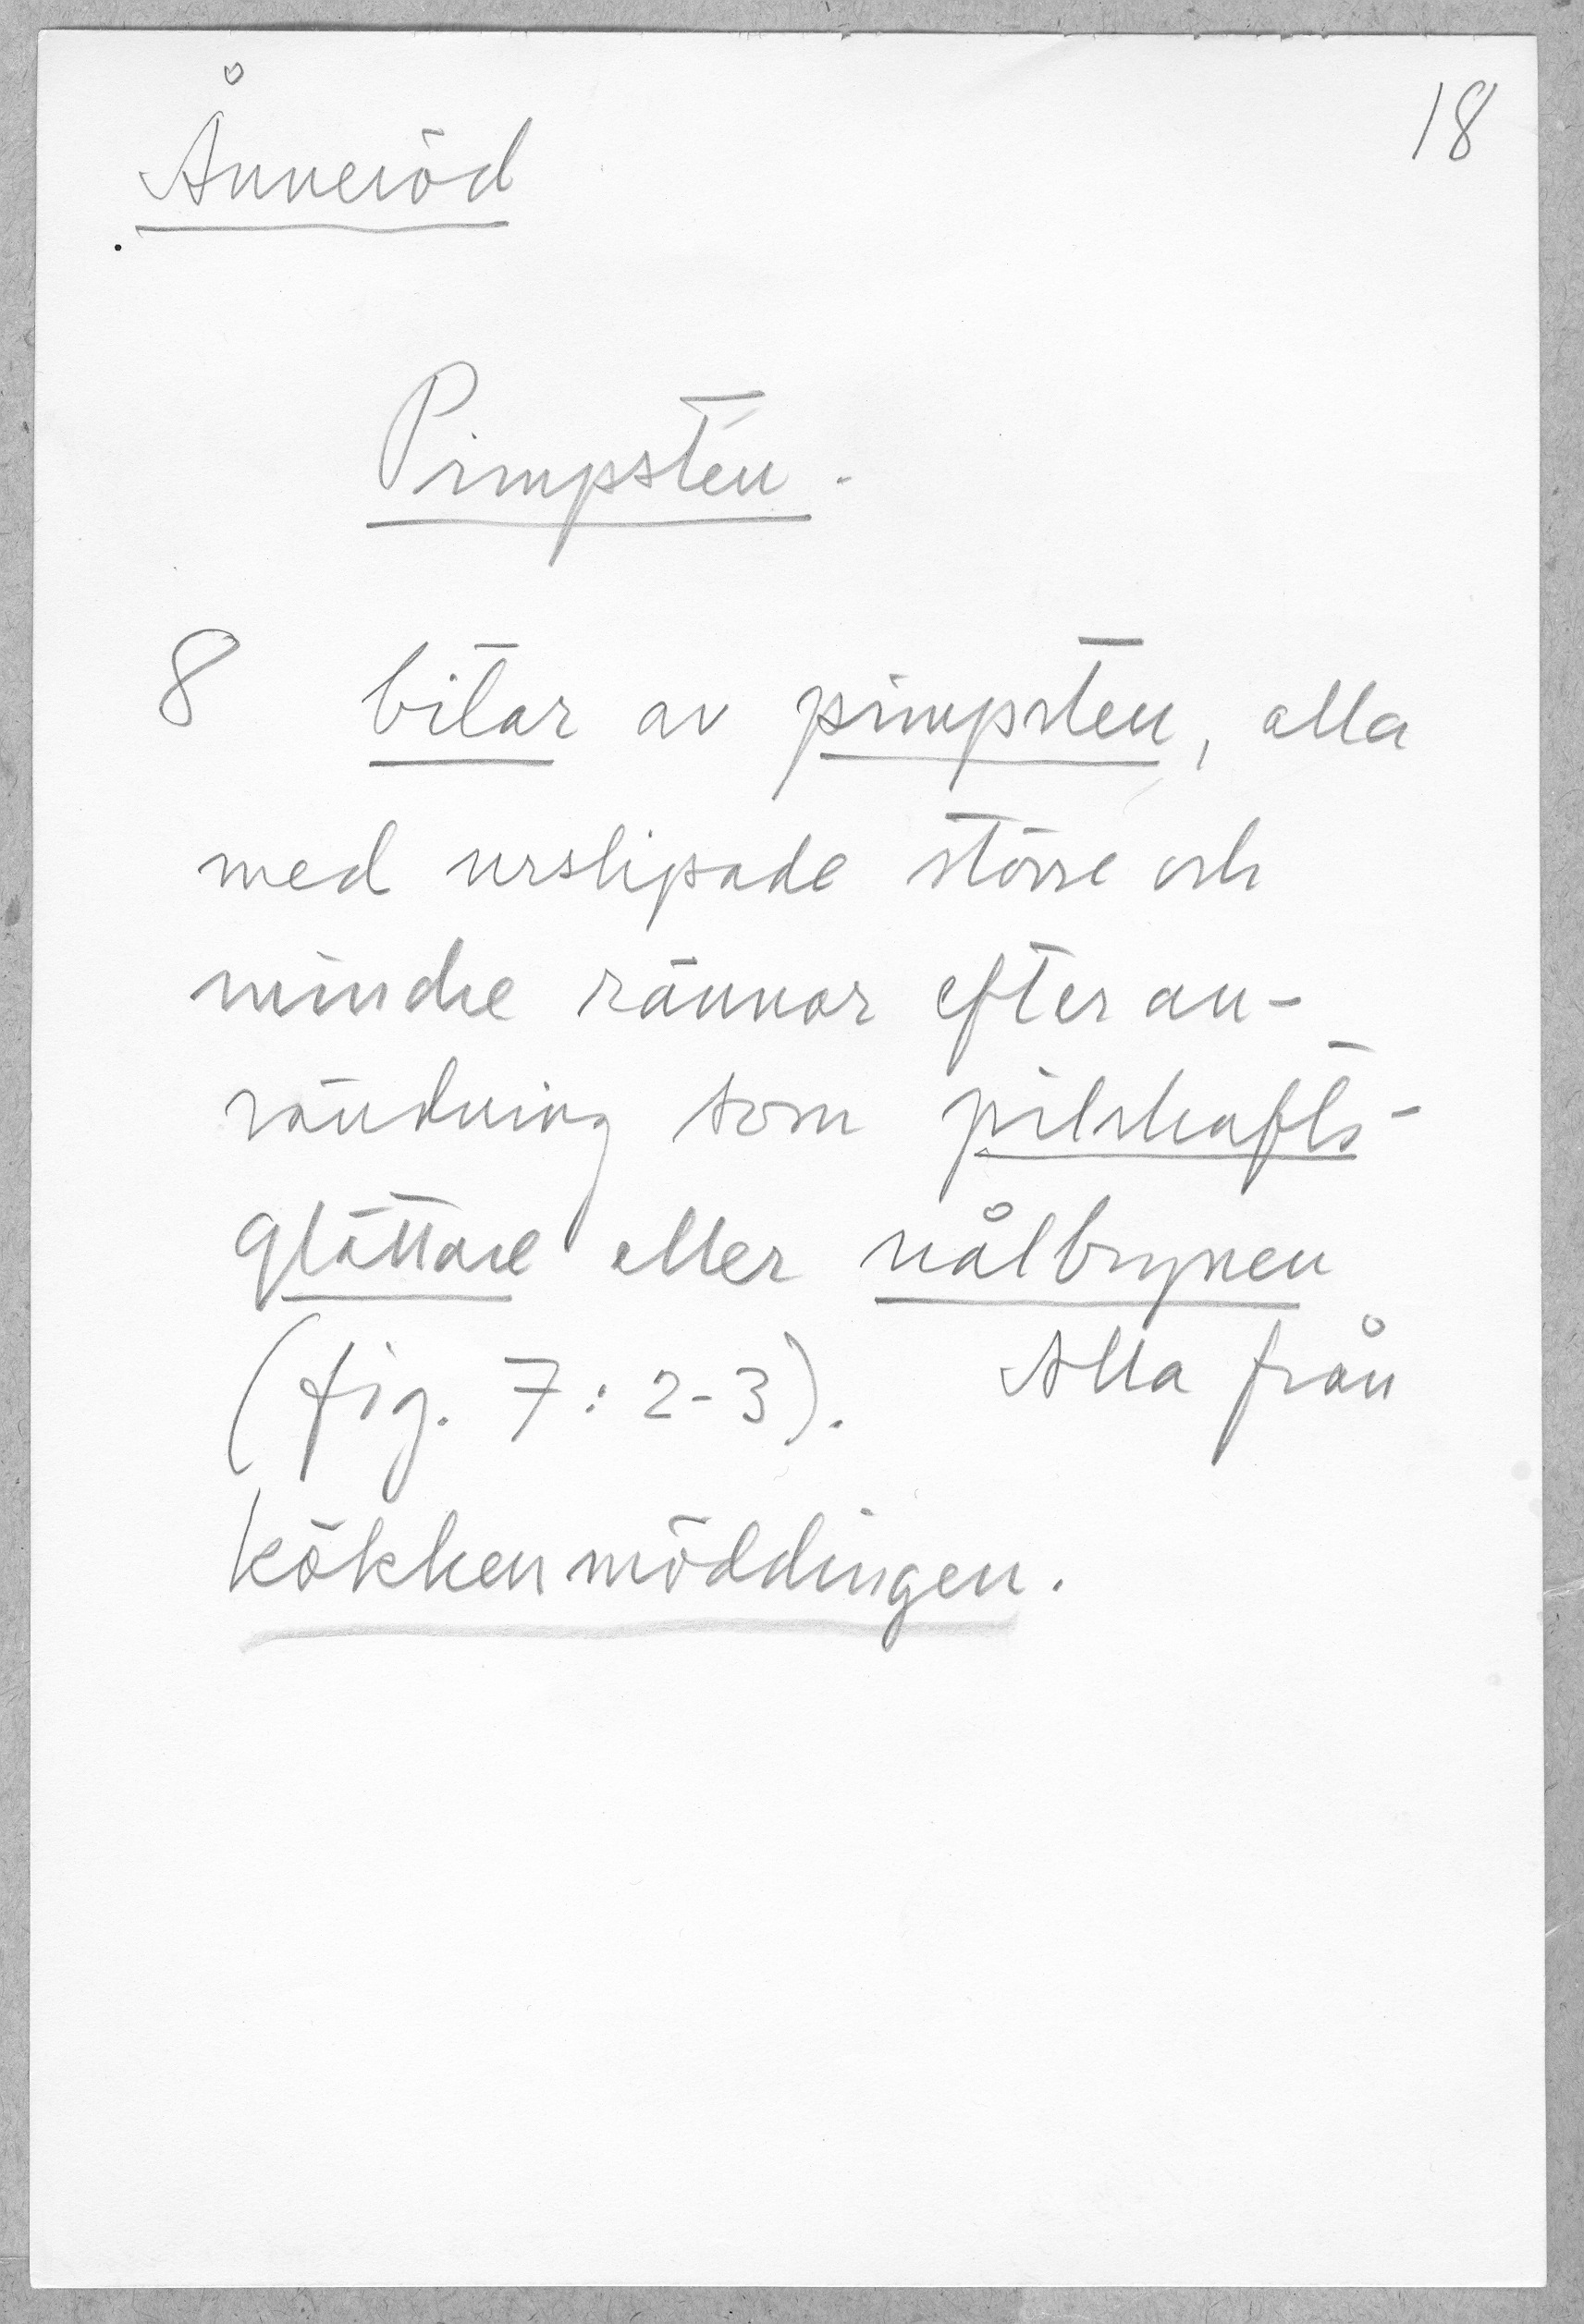 18
Ånneröd
Pimpsten.
8 bitar av pimpsten, alla
med urslipade större och
mindre rännor efter an-
vändning som pilskafts-
glättare eller nålbrynen
(fig. 7: 2-3). Alla från
kökkenmöddingen.